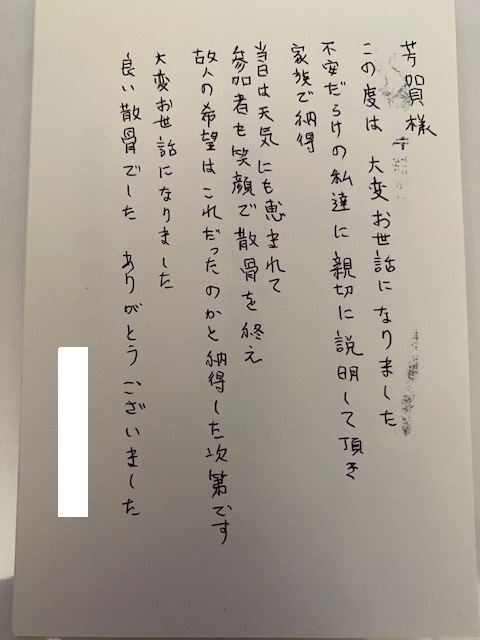 芳賀様
この度は 大変お世話になりました
不安だらけの私達に親切に説明して頂き
家族で納得
当日は天気にも恵まれて
参加者も笑顔で散骨を終え
故人の希望はこれだったのかと納得した次第です
大変お世話になりました
良い散骨でした ありがとうございました